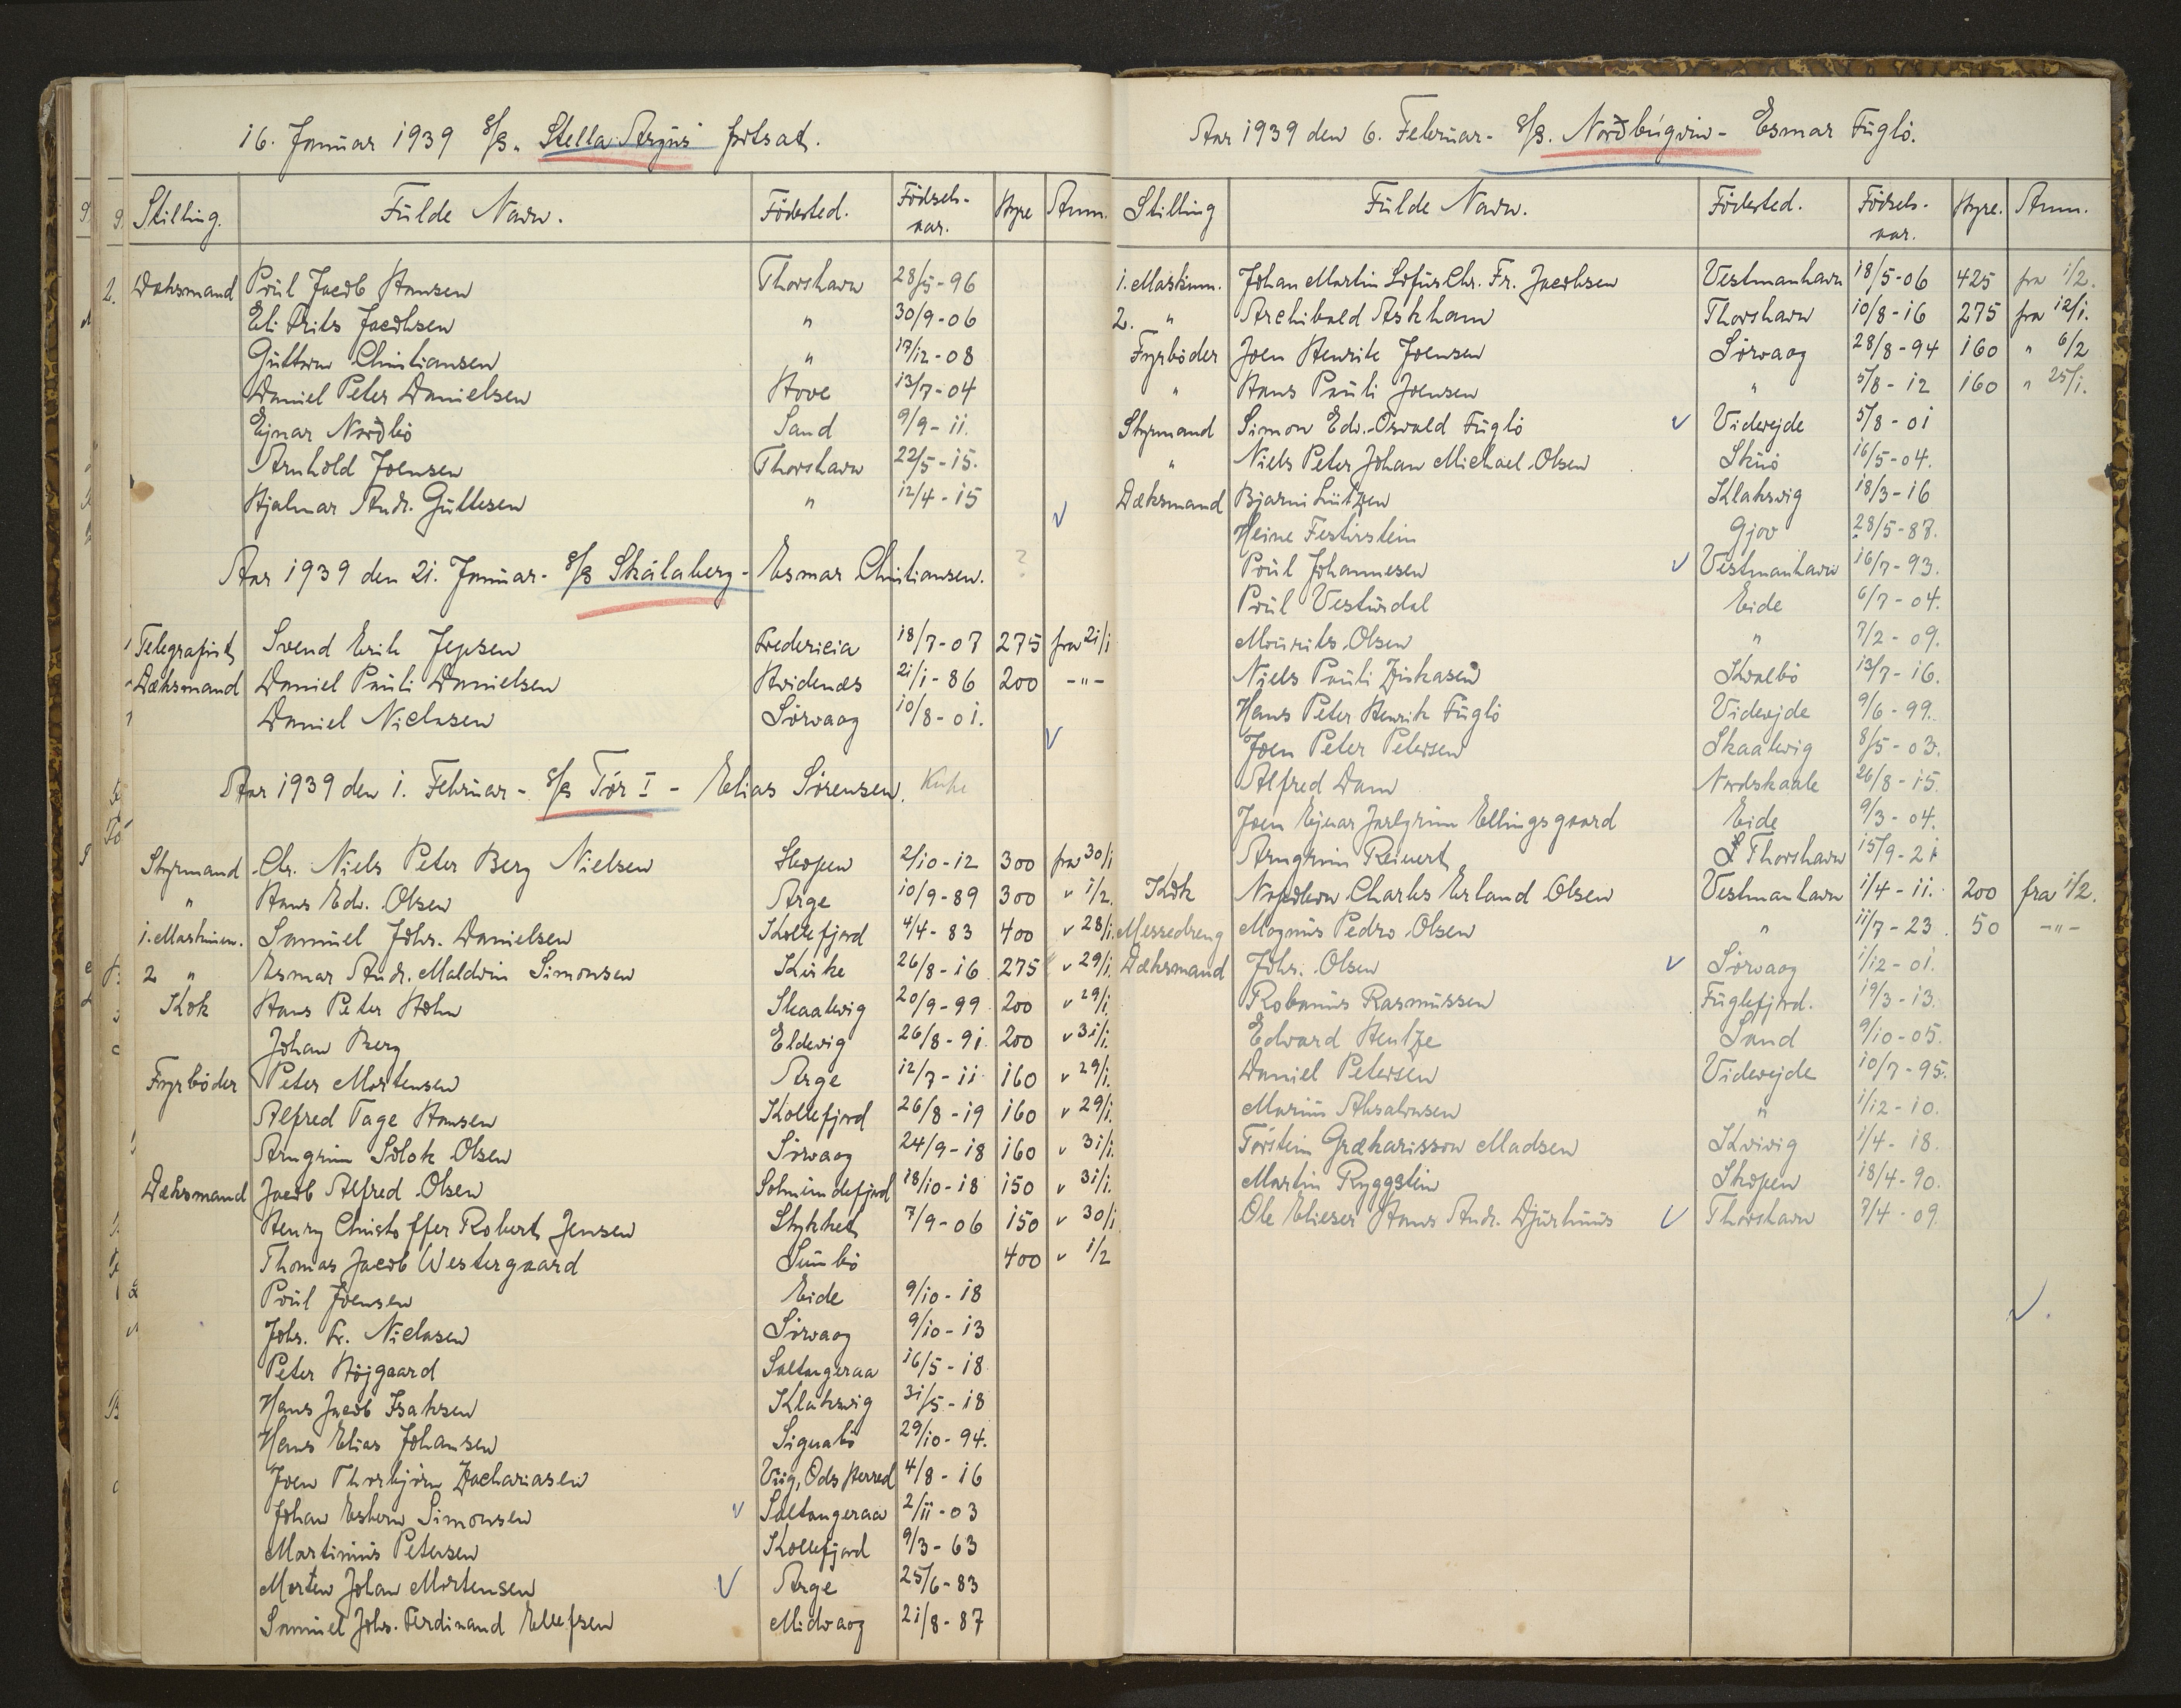 16. Januar 1939 S/S. "Stella Argus" fortsat.
Stilling. Fulde Navn. Födested. Födsels-aar. Hyre Anm.
Dæksmand Poul Jacob Hansen Thorshavn 28/5-96
Eli Frits Jacobsen " 30/9-06
Guttorm Christiansen " 17/12-08
Daniel Peter Danielsen Hove 13/7-04
Ejnar Norðbö Sand 9/9-11.
Arnhold Joensen Thorshavn 22/5-15.
Hjalmar Andr. Gullesen " 12/4-15
Aar 1939 den 21. Januar - S/S Skálaberg - Esmar Christiansen. ?
Telegrafist Svend Erik Jepsen Fredericia 18/7-07 275 fra 21/1
Dæksmand Daniel Pauli Danielsen Hvidenæs 21/1-86 200 -"-
Daniel Niclasen Sörvaag 10/8-01.
Aar 1939 den 1. Februar - S/S Tór I - Elias Sörensen.
Styrmand Chr. Niels Peter Berg Nielsen Skopen 2/10-12 300 fra 30/1
" Hans Edv. Olsen Arge 10/9-89 300 " 1/2.
1. Maskinm. Samuel Johs. Danielsen Kollefjord 4/4-83 400 " 28/1.
2 " Esmar Andr. Maldvin Simonsen Kirke 26/8-16 275 " 29/1.
Kok Hans Peter Holm Skaalevig 20/9-99 200 " 29/1.
Johan Berg Eldevig 26/8-91 200 " 31/1.
Fyrböder Peter Mortensen Arge 12/7-11 160 " 29/1.
Alfred Tage Hansen Kollefjord 26/8-19 160 " 29/1.
Arngrim Olsen Sörvaag 24/9-18 160 " 31/1.
Dæksmand Jacob Alfred Olsen Solmundefjord 18/10-18 150 " 31/1.
Henry Christoffer Robert Jensen Stykket 7/9-06 150 " 30/1
Thomas Jacob Westergaard Sumbö 400 " 1/2
Poul Joensen Eide 9/10-18
Johs. Fr. Niclasen Sörvaag 9/10-13
Peter Höjgaard Saltangeraa 16/5-18
Hans Jacob Isaksen Klaksvig 31/5-18
Hans Elias Johansen Signabö 29/10-94.
Joen Thorbjörn Zachariasen Viig, Ods Herred 4/8-16
Johan Esbern Simonsen Saltangeraa 2/11-03
Martinius Petersen Kollefjord 9/3-63
Morten Johan Mortensen Arge 25/6-83
Samuel Johs. Ferdinand Ellefsen Midvaag 21/8-87
Aar 1939 den 6. Februar - S/S. Norðbúgvin - Esmar Fuglö.
Stilling Fulde Navn. Födested. Födsels-aar. Hyre. Anm.
1. Maskinm. Johan Martin Lofus Chr. Fr. Jacobsen Vestmanhavn 18/5-06 425 fra 1/2.
2. " Archibald Askham Thorshavn 10/8-16 275 fra 12/1.
Fyrböder Joen Henrik Joensen Sörvaag 28/8-94 160 " 6/2
" Hans Pauli Joensen " 5/8-12 160 " 25/1.
Styrmand Simon Edv. Osvald Fuglö Viderejde 5/8-01
" Niels Peter Johan Michael Olsen Skuö 16/5-04.
Dæksmand Bjarni Lützen Klaksvig 18/3-16
Heine Festirstein Gjov 28/5-87.
Poul Johannesen Vestmanhavn 16/7-93.
Poul Vesturdal Eide 6/7-04.
Mourits Olsen " 7/2-09.
Niels Pauli Ziskasen Kvalbö 13/7-16.
Hans Peter Henrik Fuglö Viderejde 9/6-99.
Joen Peter Petersen Skaalevig 8/5-03.
Alfred Dam Nordskaale 26/8-15.
Joen Ejnar Jarlgrim Ellingsgaard Eide 9/3-04.
Arngrim Reinert Thorshavn 15/9-21
Kok Napoleon Charles Erland Olsen Vestmanhavn 1/4-11. 200 fra 1/2.
Messedreng Magnus Pedro Olsen " 11/7-23. 50 -"-
Dæksmand Johs. Olsen Sörvaag 1/12-01.
Robanus Rasmussen Fuglefjord. 19/3-13.
Edvard Hentze Sand 9/10-05.
Daniel Petersen Viderejde 10/7-95.
Marius Absalonsen " 1/12-10.
Tórstein Grækarisson Madsen Kvivig 1/4-18.
Martin Ryggstein Skopen 18/4-90.
Ole Elieser Hans Andr. Djurhuus Thorshavn 7/4-09.